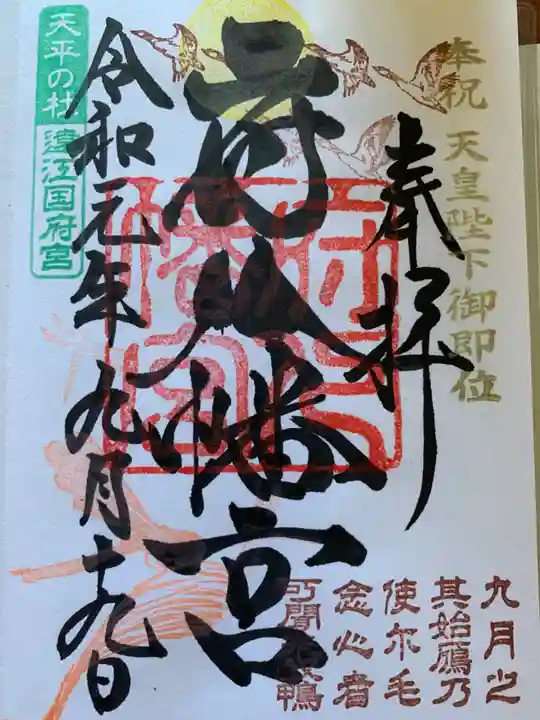 奉祝 天皇陛下御即位
奉拝
府八幡宮
令和元年九月十九日
天平の杜
遠江国府宮
九月之
其始鴈乃
使尓毛
念心者
可聞来奴鴨